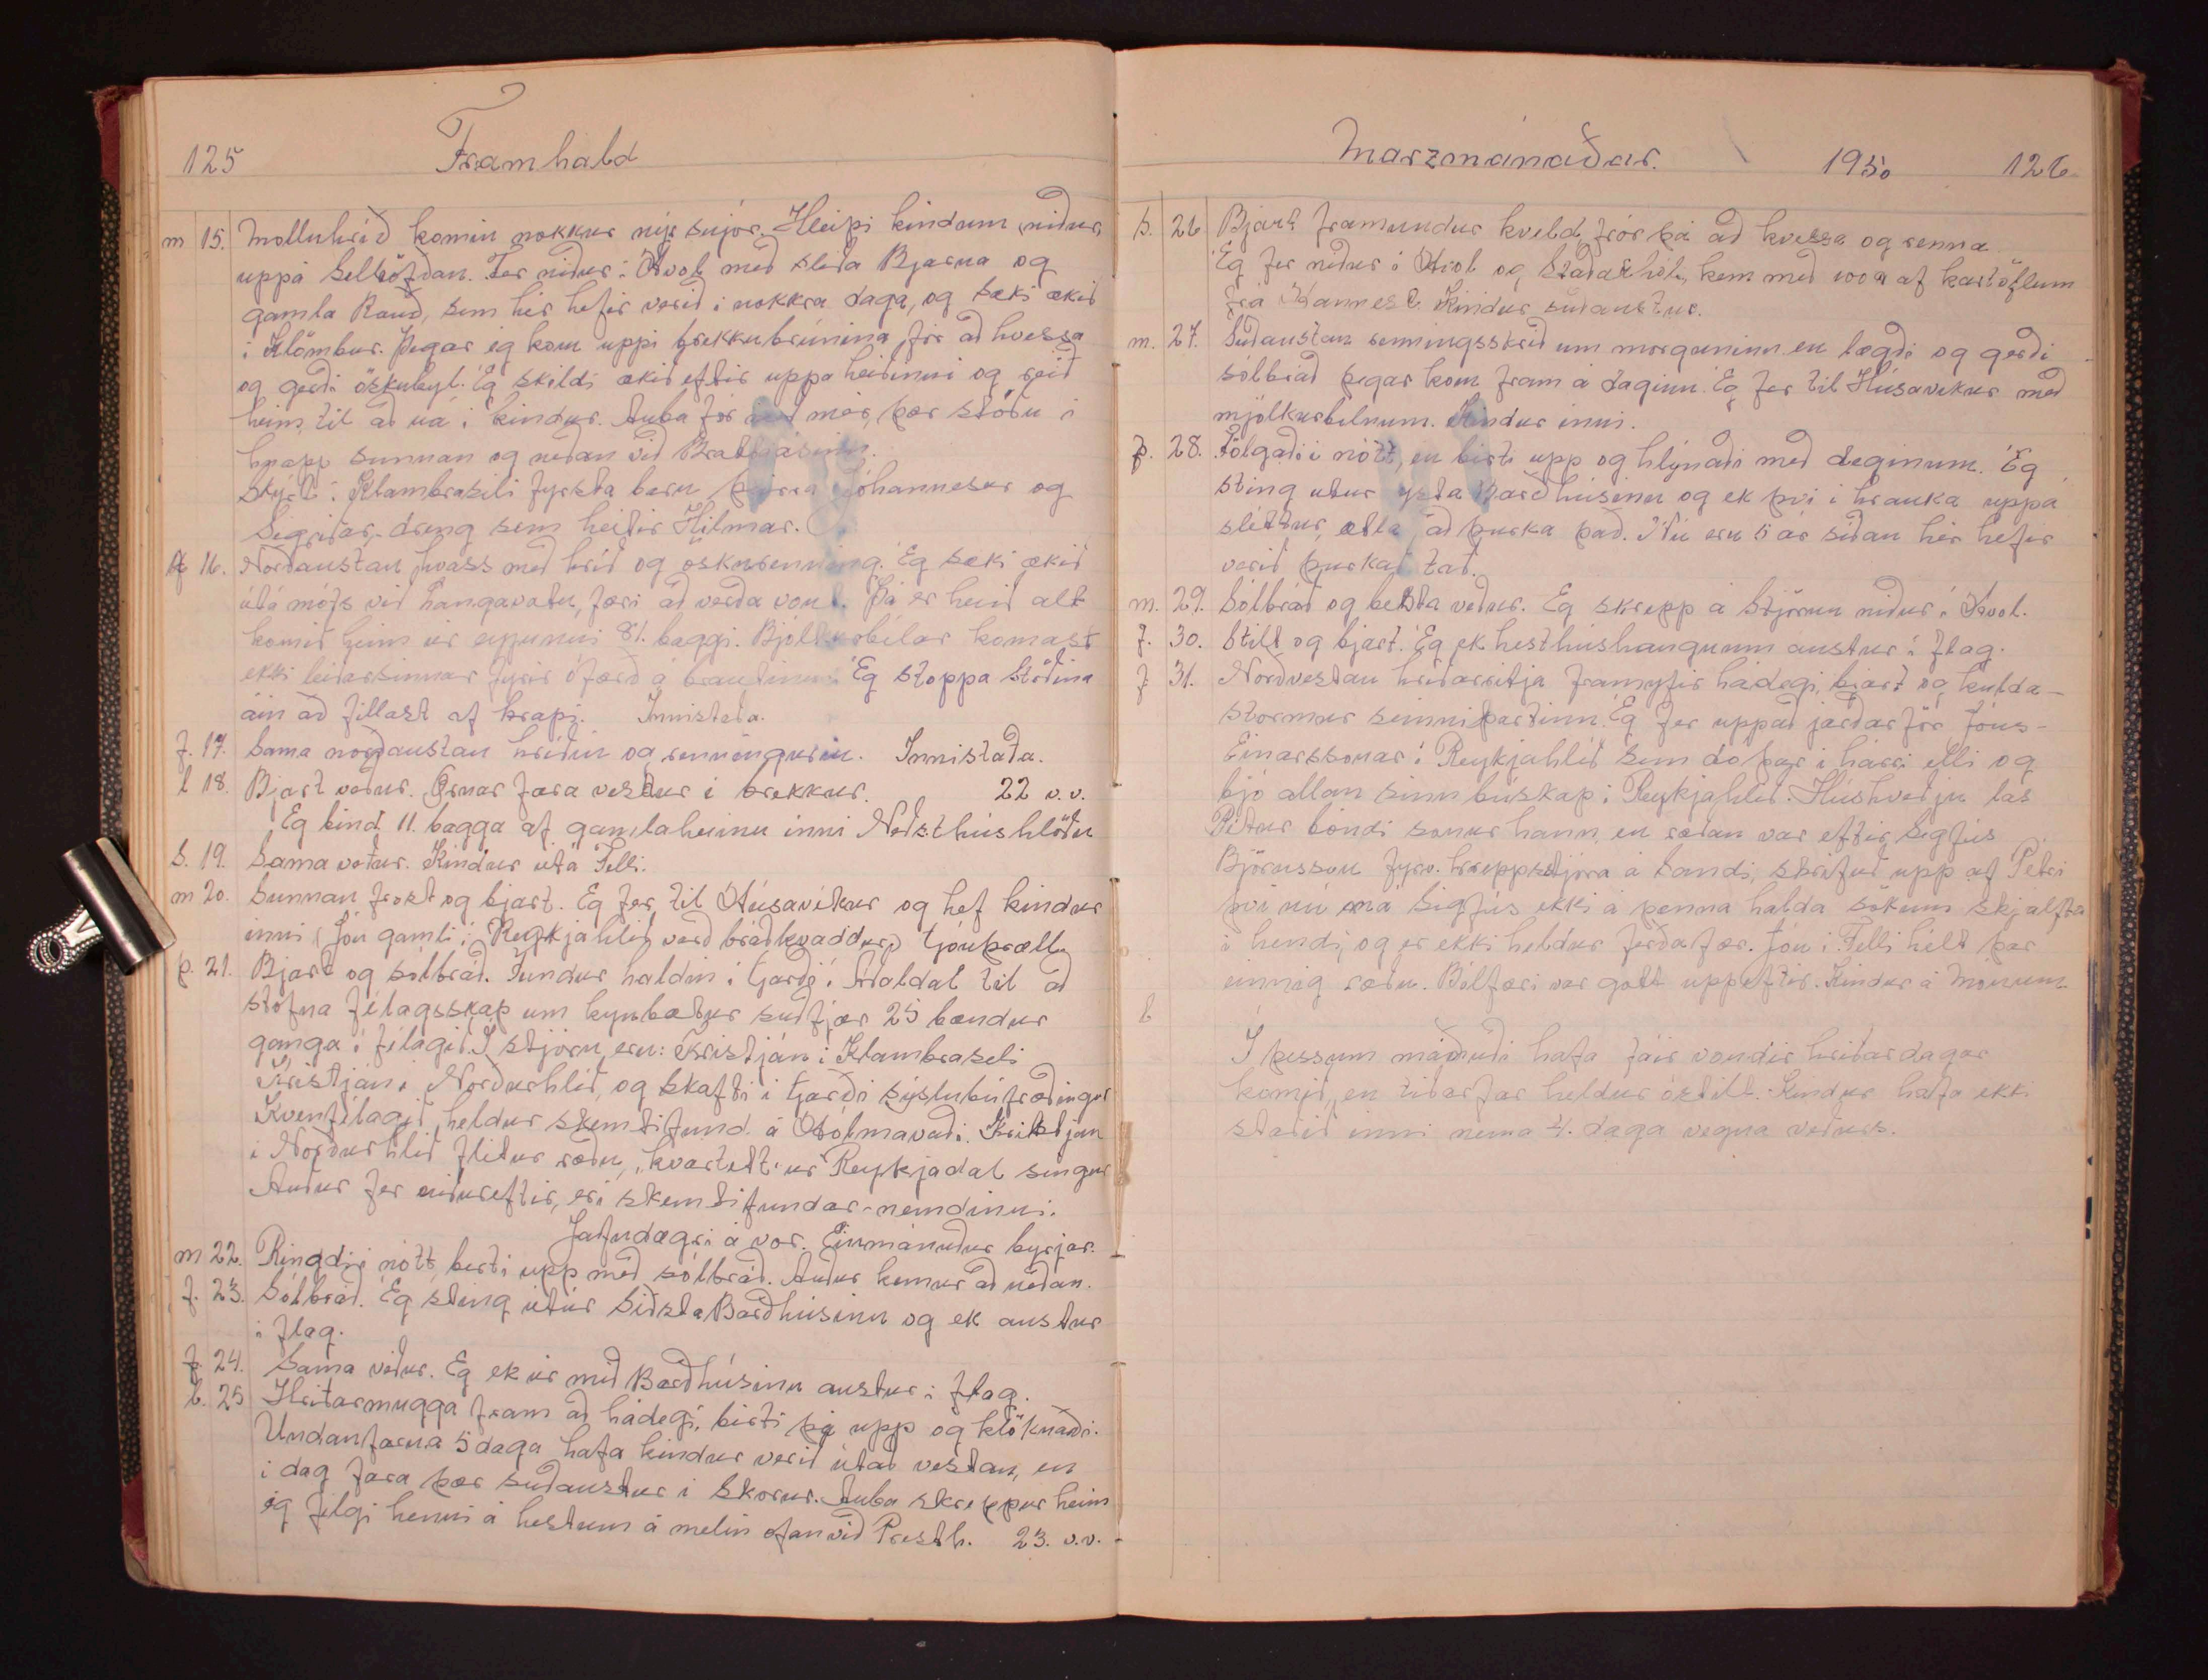 125 Framhald
m 15. Molluhríð komin nokkur nýr snjór. Hleipi kindum niður
uppá Selhöfðan. Fer niður í Hvol með sleða Bjarna og
gamla Rauð, sem hér hefir verið í nokkra daga, og sæki ækið
í Klömbur. Þegar ég kom uppi brekkubrúnina fór að hvessa
og gerði öskubyl. Ég skildi ækið eftir uppá heiðinni og reið
heim til að ná í kindur. Auba fór með mér, þær stóðu í
hnapp sunnan og neðan við
Skýrt í Klambraseli fyrsta barn þeirra Jóhannesar og
Sigríðar, dreng sem heitir Hilmar.
f 16. Norðaustan hvass með hríð og öskurenning. Ég sæki ækið
útá móts við Langavatn, færi að verða vont. Þá er heið alt
komið heim úr eyjunni 81. baggi. Mjólkurbílar komast
ekki leiðarsinnar fyrir ófærð á brautinni. Ég stoppa Stöðina
áin að fillast af krapi. Innistaða.
f. 17. Sama norðaustan hríðin og renningurin. Innistaða.
l 18. Bjart veður. Ærnar fara vestur í brekkur. 22 v.v.
Ég bind 11. bagga af gamlaheinu inni Neðsthúshlöðu
S. 19. Sama veður. Kindur útá Felli.
m 20. Sunnan frost og bjart. Ég fer til Húsavíkur og hef kindur
inni (Jón gamli í Reykjahlíð varð bráðkvaddur)
þ. 21. Bjart og sólbráð. Fundur haldin í Garði í Aðaldal til að
stofna félagsskap um kynbætur sauðfjár 25 bændur
ganga í félagið. Í stjórn eru: Kristján í Klambraseli
Kristján í Norðurhlíð, og Skafti í Garði sýslubúfræðingur
Kvenfélagið heldur skemtifund á Hólmavaði. Kristján
í Norðurhlíð flitur ræðu, kvartett úr Reykjadal singur
Auður fer niðureftir, er í skemtifundar-nemdinni.
Jafndægri á vor. Einmánuður byrjar.
m 22. Ringdi í nótt, birti upp með sólbráð. Auður kemur að neðan.
f. 23. Sólbráð. Ég sting útúr Siðsta Barðhúsinu og ek austur
í flag.
f. 24. Sama veður. Ég ek úr mið Barðhúsinu austur í flag.
l. 25 Hríðarmugga fram að hádegi, birti þá upp og klöknaði.
Undanfarna 5 daga hafa kindur verið útað vestan, en
í dag fara þær suðaustur í Skorur. Auba skreppur heim
ég filgi henni á hestum á melin ofanvið Presth. 23. v.v.
Marzmánaðar. 1950 126
S. 26 Bjart framundir kveld, fór þá að hvessa og renna
Ég fer niður í Hvol og Staðarhól, kem með 100 af kartöflum
frá Hannesi. Kindur suðaustur.
m. 27. Suðaustan renningsskrið um morguninn en lægði og gerði
sólbráð þegar kom fram á daginn. Ég fer til Húsavíkur með
mjólkurbílnum. Kindur inni.
þ. 28. Fölgaði í nótt, en birti upp og hlýnaði með deginum. Ég
sting útúr ysta Barðhúsinu og ek því í hrauka uppá
sléttur, ætla að þurka það. Nú eru 5 ár síðan hér hefir
verið þurkað tað.
m. 29. Sólbráð og besta veður. Ég skrepp á Stjörnu niður í Hvol.
f. 30. Stilt og bjart. Ég ek hesthúshaugnum austur í flag.
f 31. Norðvestan hríðarritja framyfir hádegi, bjart og kulda-
stormur seinnipartinn. Ég fer uppað jarðarför Jóns-
Einarssonar í Reykjahlíð sem dó þar í hárri elli og
bjó allan sinn búskap í Reykjahlíð. Húskveðju las
Pétur bóndi sonur hann, en ræðan var eftir Sigfús
Björnsson fyrv. hreppstjóra á Sandi, skrifuð upp af Pétri
því nú má Sigfús ekki á penna halda sökum skjálfta
í hendi, og er ekki heldur ferðafær. Jón í Felli hélt þar
einnig ræðu. Bílfæri var gott uppeftir. Kindur á Mónum.
l
Í þessum mánuði hafa fáir vondir hríðardagar
komið, en tíðarfar heldur óstilt. Kindur hafa ekki
staðið inni nema 4. daga vegna veðurs.